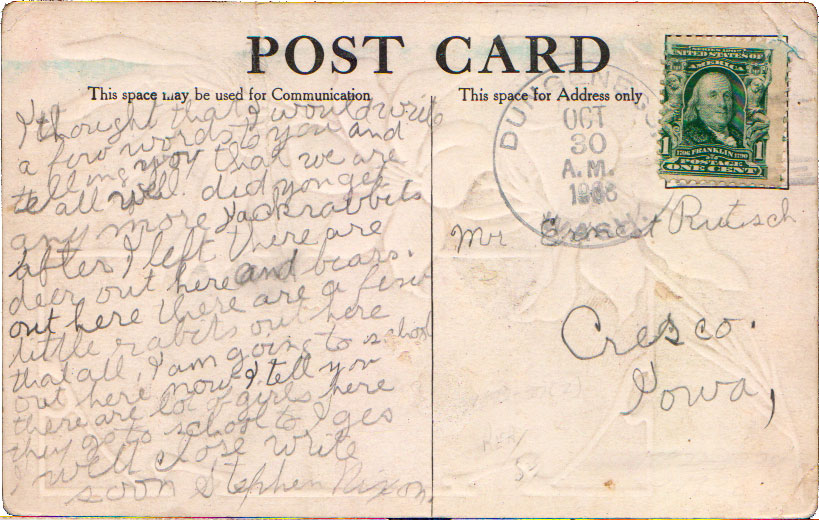 POST CARD
This space may be used for Communication
This space for Address only
I thought that I would write
a few words to you and
telling you that we are
all well. did you get
any more Jackrabbits
after I left There are
deer out here and bears.
out here there are a few
little rabets out here
that all. I am going to school
out here now I tell you
there are lot of girls here
they go to school to I ges
I will close write
soon Stephen Nixon.
DUNGENESS
OCT
30
A.M.
WASH.
SERIES 1902
UNITED STATES OF
AMERICA
1706 FRANKLIN 1790
1 POSTAGE 1
ONE CENT
Mr Ernest Rutisch
Cresco.
Iowa,